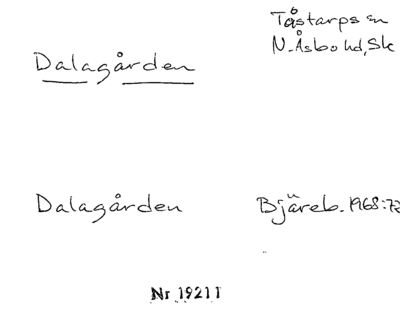 Tåstarps sn
Dalagården
N. Åsbo hd, Sk
Dalagården
Bjäreb. 1968:72
Nr 19211